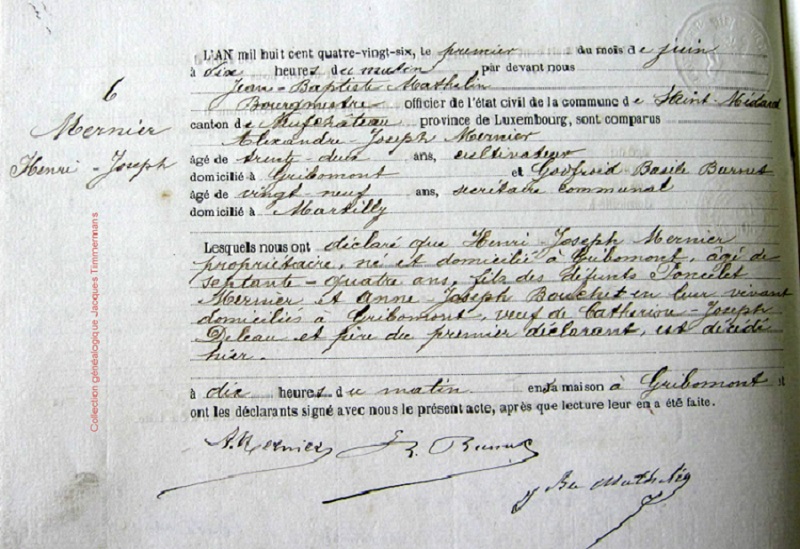 6
Mernier
Henri-Joseph
L'AN mil huit cent quatre-vingt-six, le premier du mois de juin
à dix heures du matin par devant nous
Jean-Baptiste Mathelin
Bourgmestre officier de l'état civil de la commune de Saint-Médard
canton de Neufchâteau province de Luxembourg, sont comparus
Alexandre-Joseph Mernier
âgé de trente-deux ans, cultivateur
domicilié à Gribomont et Godfroid Basile Burnet
âgé de vingt neuf ans, secrétaire communal
domicilié à Martilly
Lesquels nous ont déclaré que Henri-Joseph Mernier
propriétaire, né et domicilié à Gribomont, âgé de
septante-quatre ans, fils des défunts Poncelet
Mernier et Anne-Joseph Bouchet en leur vivant
domiciliés à Gribomont, veuf de Catherine-Joseph
Deleau et père du premier déclarant, est décédé
hier.
à dix heures du matin en sa maison à Gribomont et
ont les déclarants signé avec nous le présent acte, après que lecture leur en a été faite.
A. Mernier
J Bte Mathelin
Collection généalogique Jacques Timmermans